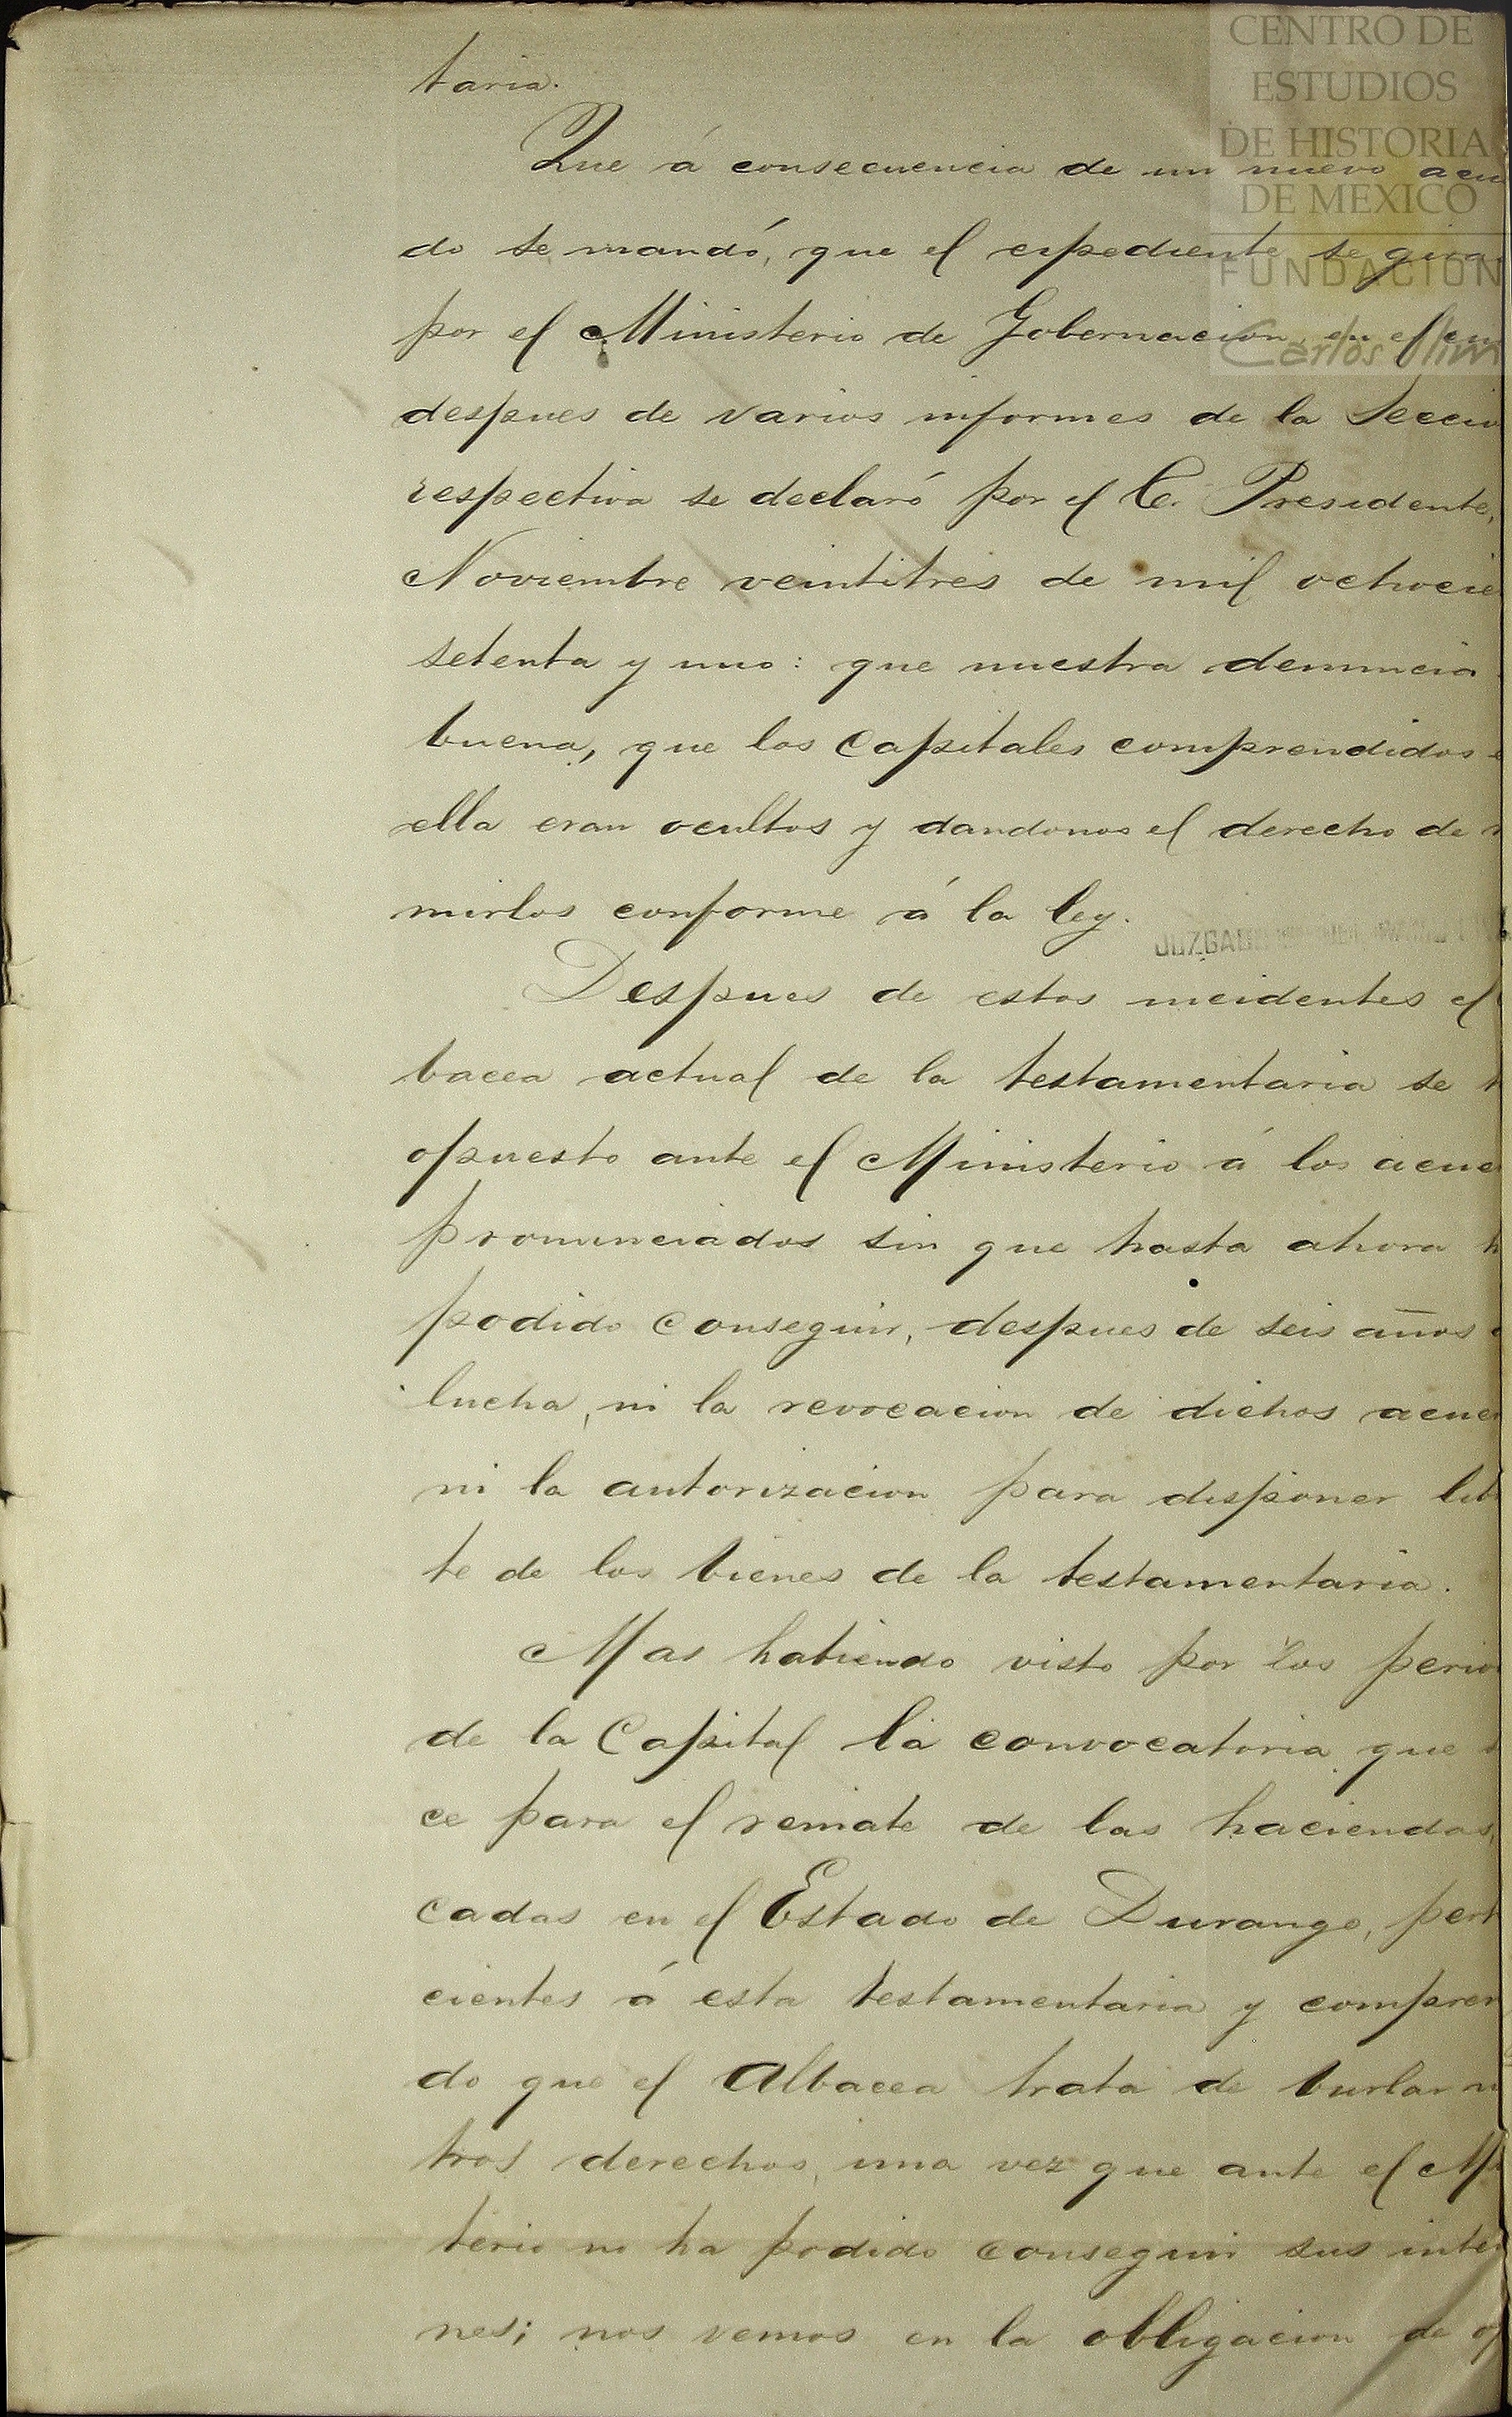 CENTRO DE
ESTUDIOS
DE HISTORIA
DE MEXICO
FUNDACION
Carlos Slim
taria.
Que á consecuencia de un nuevo acu
do se mandó, que el espediente se gira
por el Ministerio de Gobernacion, en el cu
despues de varios informes de la Secci
respectiva se declaró por el C. Presidente,
Noviembre veintitres de mil ochocie
setenta y uno: que nuestra denuncia
buena, que los Capitales comprendidos e
ella eran ocultos y dandonos el derecho de r
mirlos conforme á la ley.
JUZGAD
Despues de estos incidentes el
bacea actual de la testamentaria se h
opuesto ante el Ministerio á los acue
pronunciados sin que hasta ahora h
podido conseguir, despues de seis años
lucha, ni la revocacion de dichos acue
ni la autorizacion para disponer lib
te de los bienes de la testamentaria.
Mas habiendo visto por los perio
de la Capital la convocatoria que
ce para el remate de las haciendas,
cadas en el Estado de Durango, pert
cientes á esta testamentaria y compren
do que el Albacea trata de burlar n
tros derechos, una vez que ante el Mi
terio no ha podido conseguir sus inte
nes; nos vemos en la obligacion de op